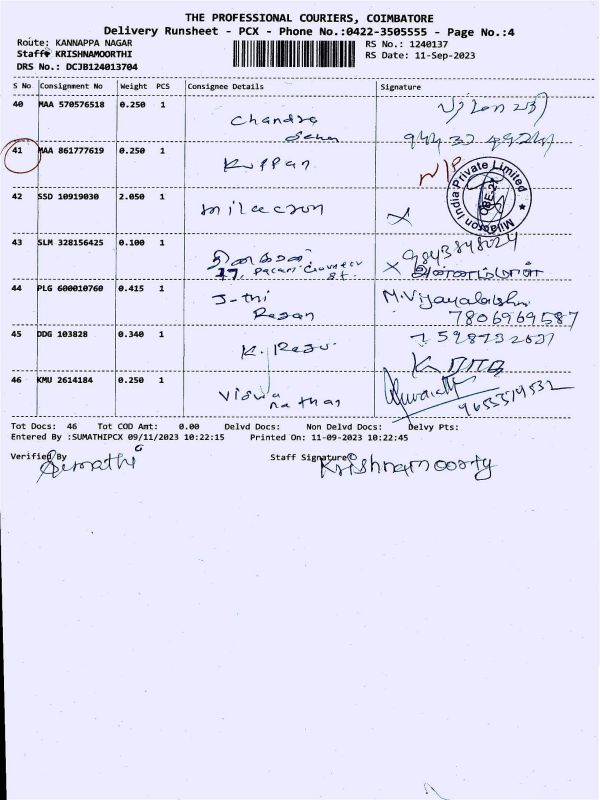 THE PROFESSIONAL COURIERS, COIMBATORE
Delivery Runsheet - PCX - Phone No.:0422-3505555 - Page No.:4
Route: KANNAPPA NAGAR
RS No.: 1240137
Staff: KRISHNAMOORTHI
RS Date: 11-Sep-2023
DRS No.: DCJB124013704
S No Consignment No Weight PCS Consignee Details Signature
40 MAA 570576518 0.250 1
Chandra
41 MAA 861777619 0.250 1
Kuppan
N/P
Milacron India Private Limited
42 SSD 10919030 2.050 1
milacron
43 SLM 328156425 0.100 1
9843848024
44 PLG 600010760 0.415 1
M.Vijayalakshmi
7806969587
45 DDG 103828 0.340 1
K. Raju
46 KMU 2614184 0.250 1
Viswa
nathan
Tot Docs: 46 Tot COD Amt: 0.00 Delvd Docs: Non Delvd Docs: Delvy Pts:
Entered By :SUMATHIPCX 09/11/2023 10:22:15 Printed On: 11-09-2023 10:22:45
Verified By Staff Signature
Sumathi Krishnamoorty